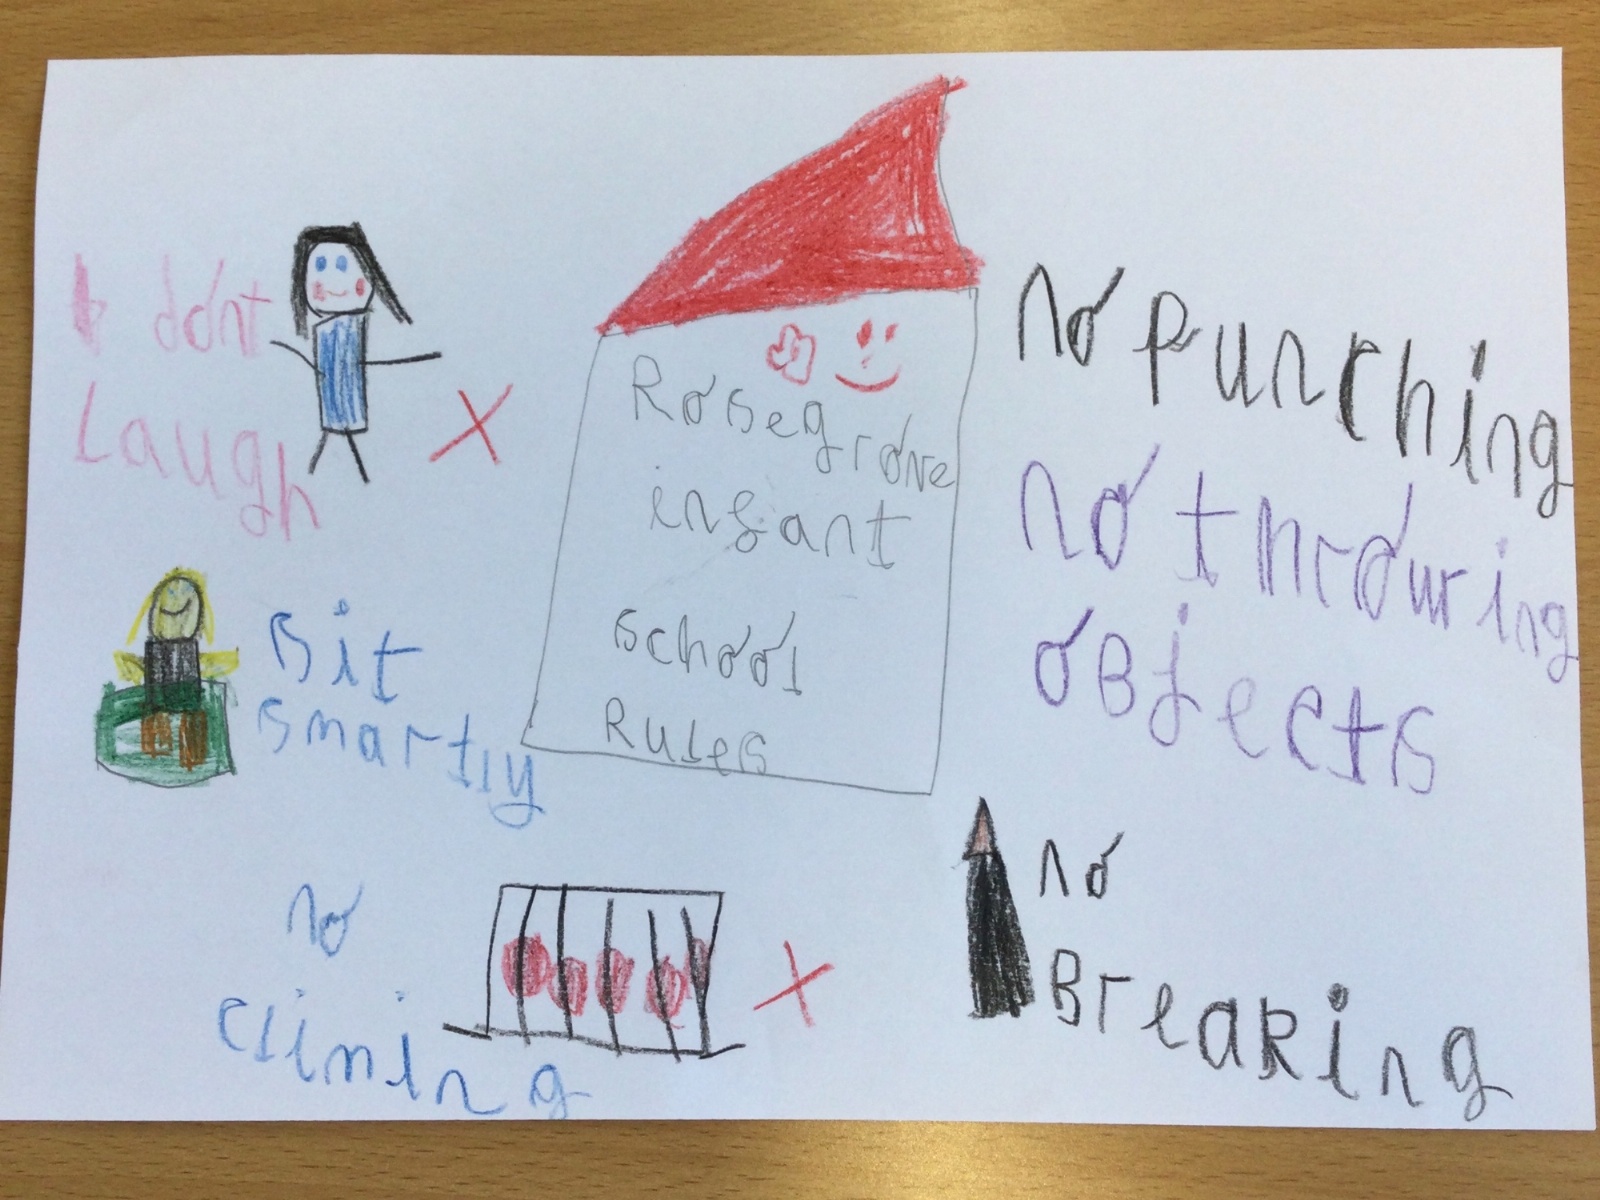 dont
Laugh
Sit
smartly
no
climing
Rosegrove
infant
school
Rules
no punching
no throwring
objects
no
Breaking